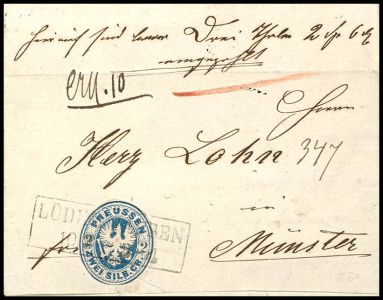 hierauf sind baar Drei Thlr 2 Sgr 6 d
eingezahlt
erh. 10
Herrn
Herz Lohn 347
in
Münster
LÜDI EN
PREUSSEN
2 2
ZWEI SILB.GR.